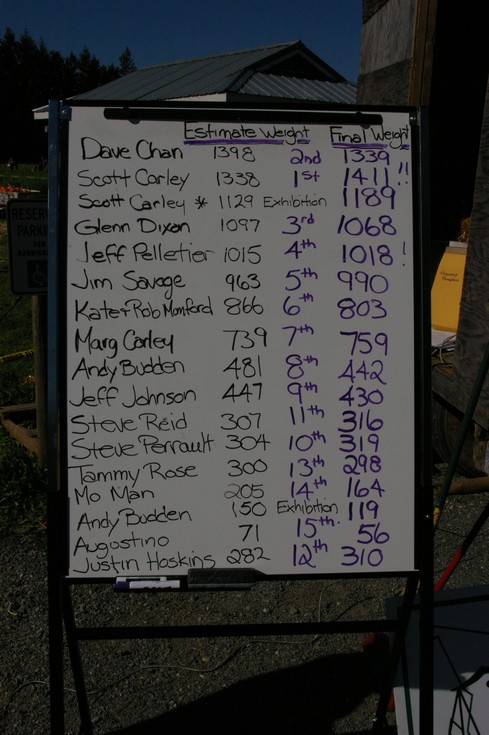 Estimate Weight Final Weight
Dave Chan 1398 2nd 1339
Scott Carley 1338 1st 1411!!
Scott Carley * 1129 Exhibition 1189
Glenn Dixon 1097 3rd 1068
Jeff Pelletier 1015 4th 1018!
Jim Savage 963 5th 990
Kate + Rob Momford 866 6th 803
Marg Carley 739 7th 759
Andy Budden 481 8th 442
Jeff Johnson 447 9th 430
Steve Reid 307 11th 316
Steve Perrault 304 10th 319
Tammy Rose 300 13th 298
Mo Man 205 14th 164
Andy Budden 150 Exhibition 119
Augostino 71 15th. 56
Justin Hoskins 282 12th 310
RESERVED
PARKING